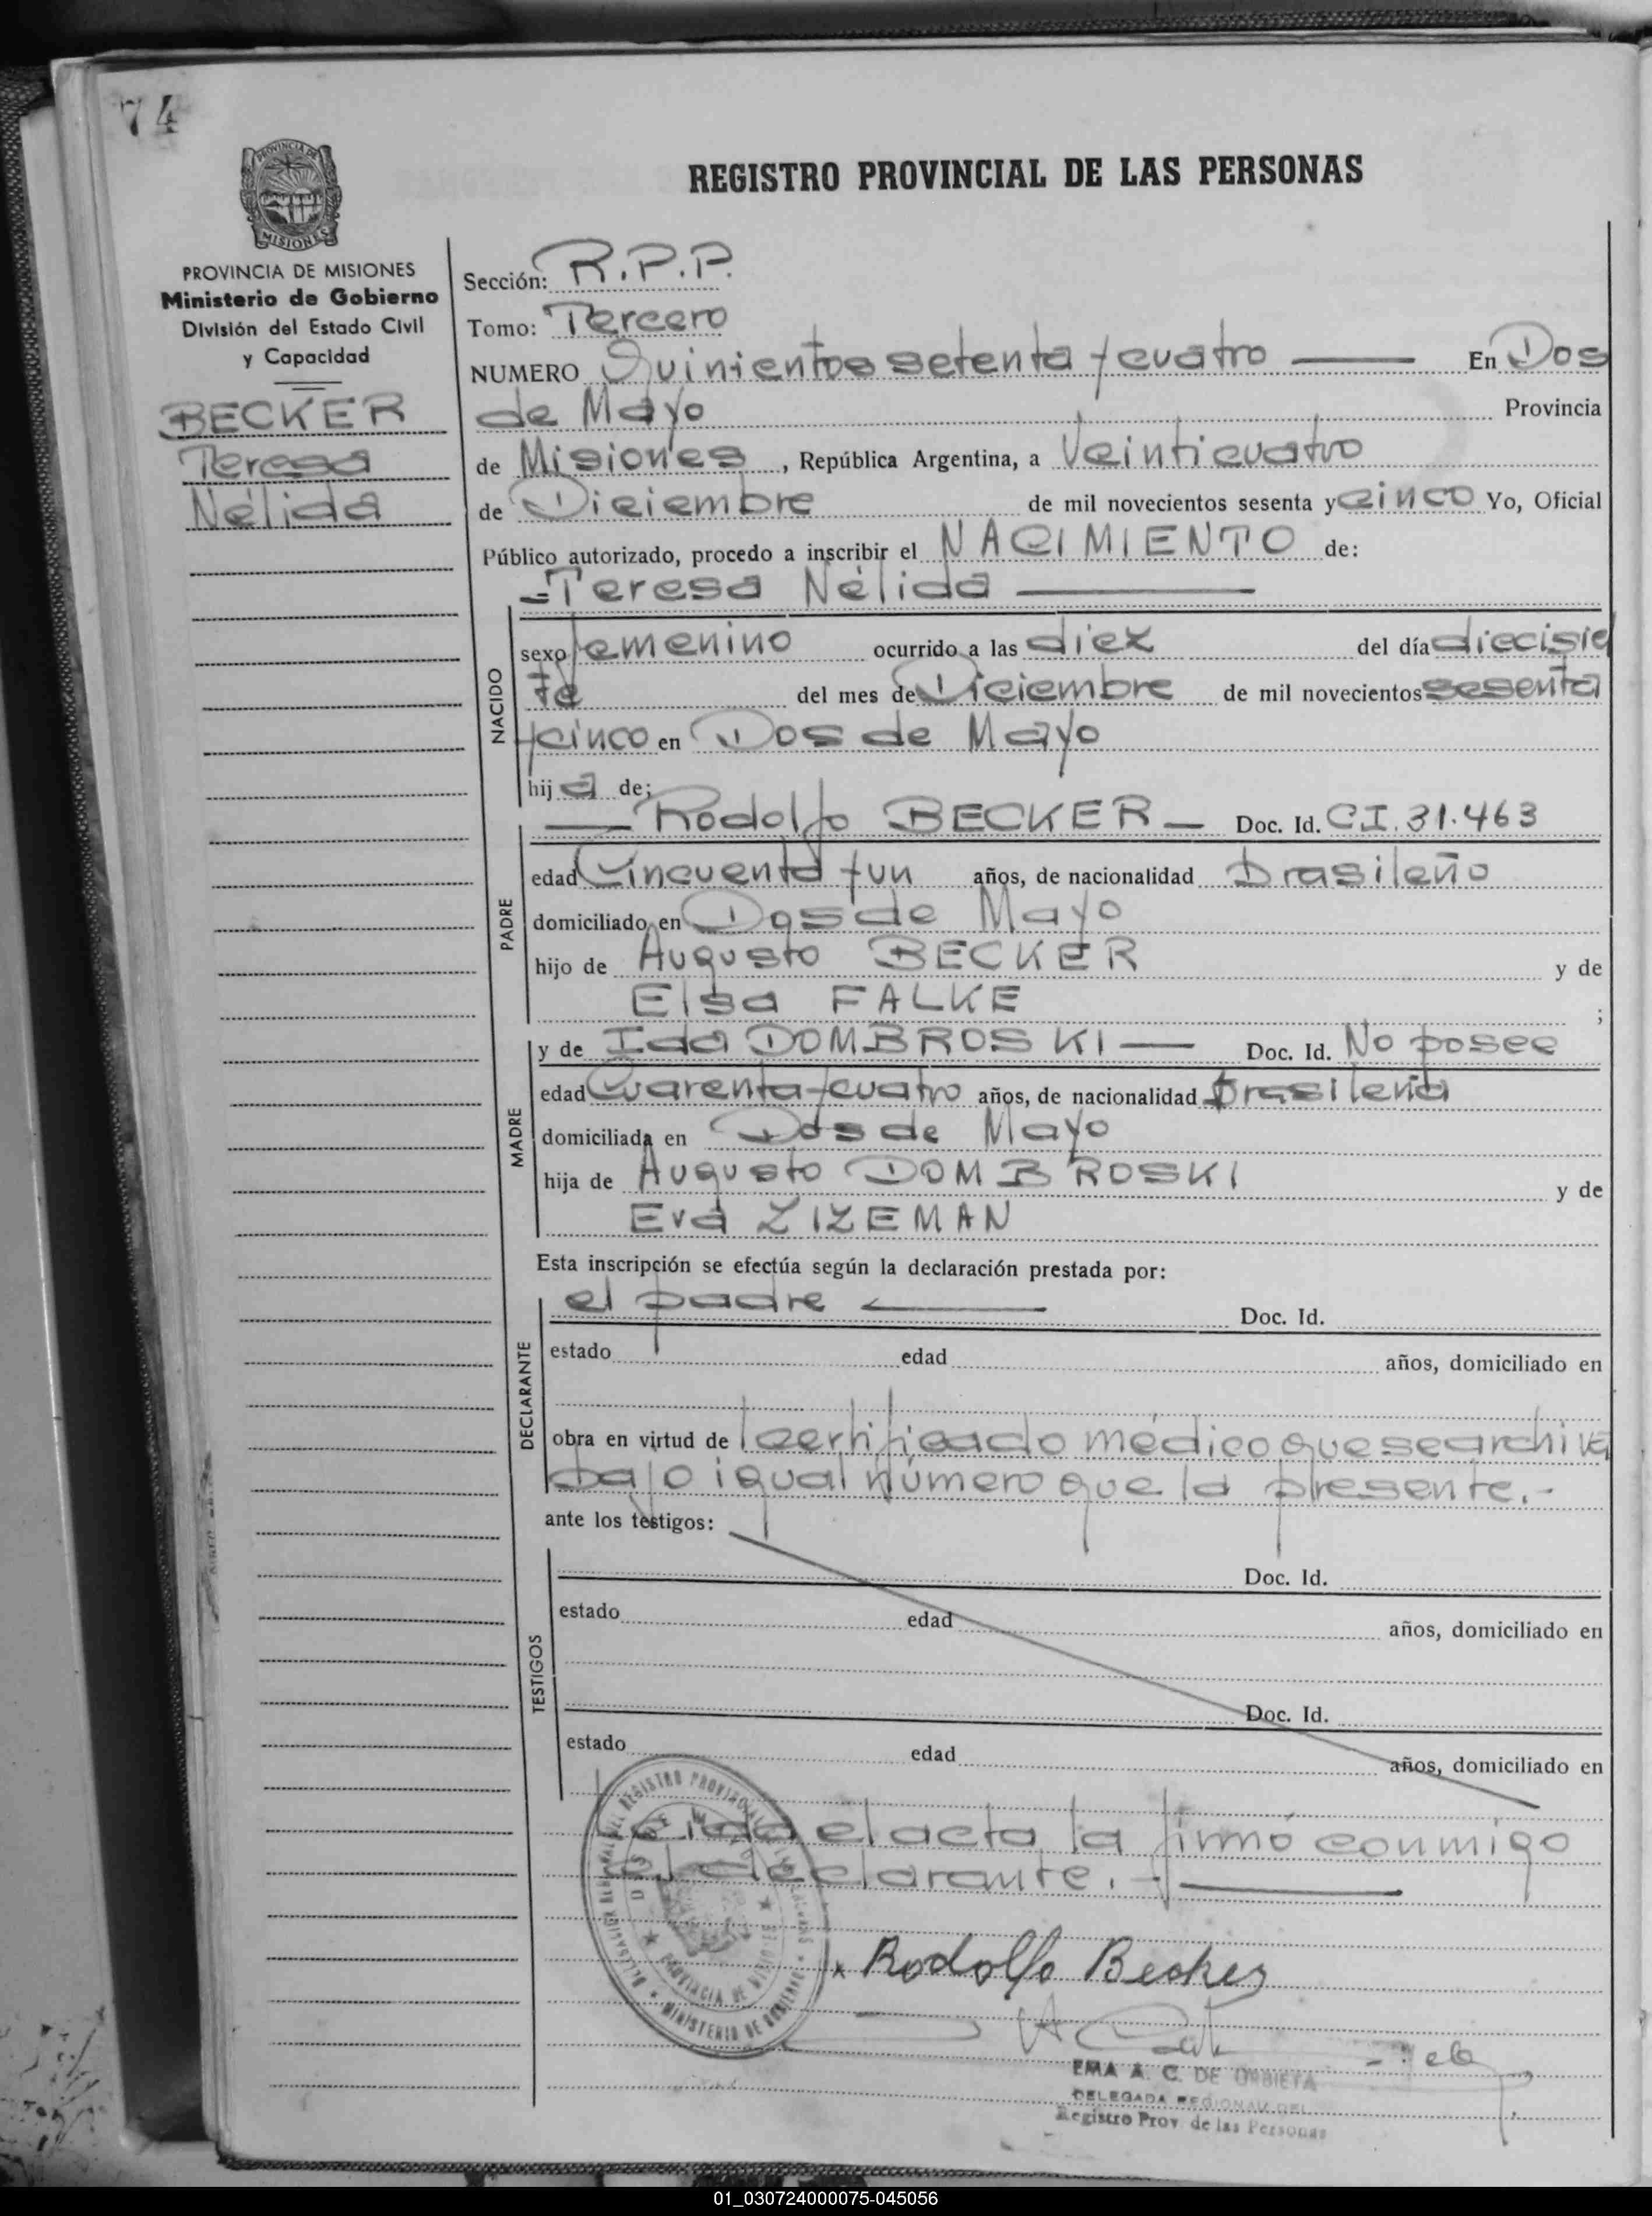 74
PROVINCIA DE
MISIONES
REGISTRO PROVINCIAL DE LAS PERSONAS
PROVINCIA DE MISIONES
Ministerio de Gobierno
División del Estado Civil
y Capacidad
BECKER
Teresa
Nélida
Sección: R.P.P.
Tomo: Tercero
NUMERO Quinientos setenta y cuatro En Dos
de Mayo Provincia
de Misiones, República Argentina, a Veinticuatro
de Diciembre de mil novecientos sesenta y cinco Yo, Oficial
Público autorizado, procedo a inscribir el NACIMIENTO de:
=Teresa Nélida
NACIDO
sexo femenino ocurrido a las diez del día diecisie
te del mes de Diciembre de mil novecientos sesenta
y cinco en Dos de Mayo
hija de;
PADRE
Rodolfo BECKER — Doc. Id. C.I. 31.463
edad Cincuenta y un años, de nacionalidad brasileño
domiciliado en Dos de Mayo
hijo de Augusto BECKER y de
Elsa FALKE ;
MADRE
y de Ida DOMBROSKI — Doc. Id. No posee
edad Cuarenta y cuatro años, de nacionalidad brasileña
domiciliada en Dos de Mayo
hija de Augusto DOMBROSKI y de
Eva ZIZEMAN
Esta inscripción se efectúa según la declaración prestada por:
DECLARANTE
el padre Doc. Id.
estado edad años, domiciliado en
obra en virtud de l certificado médico que se archiva
bajo igual número que la presente.-
ante los testigos:
TESTIGOS
Doc. Id.
estado edad años, domiciliado en
Doc. Id.
estado edad años, domiciliado en
Leida el acta la firmó conmigo
el declarante.-
Rodolfo Becker
EMA A. C. DE URBIETA
DELEGADA REGIONAL DEL
Registro Prov. de las Personas
DELEGACION REGIONAL DEL REGISTRO PROVINCIAL DE LAS PERSONAS
DOS DE MAYO
PROVINCIA DE MISIONES
MINISTERIO DE GOBIERNO
01_030724000075-045056